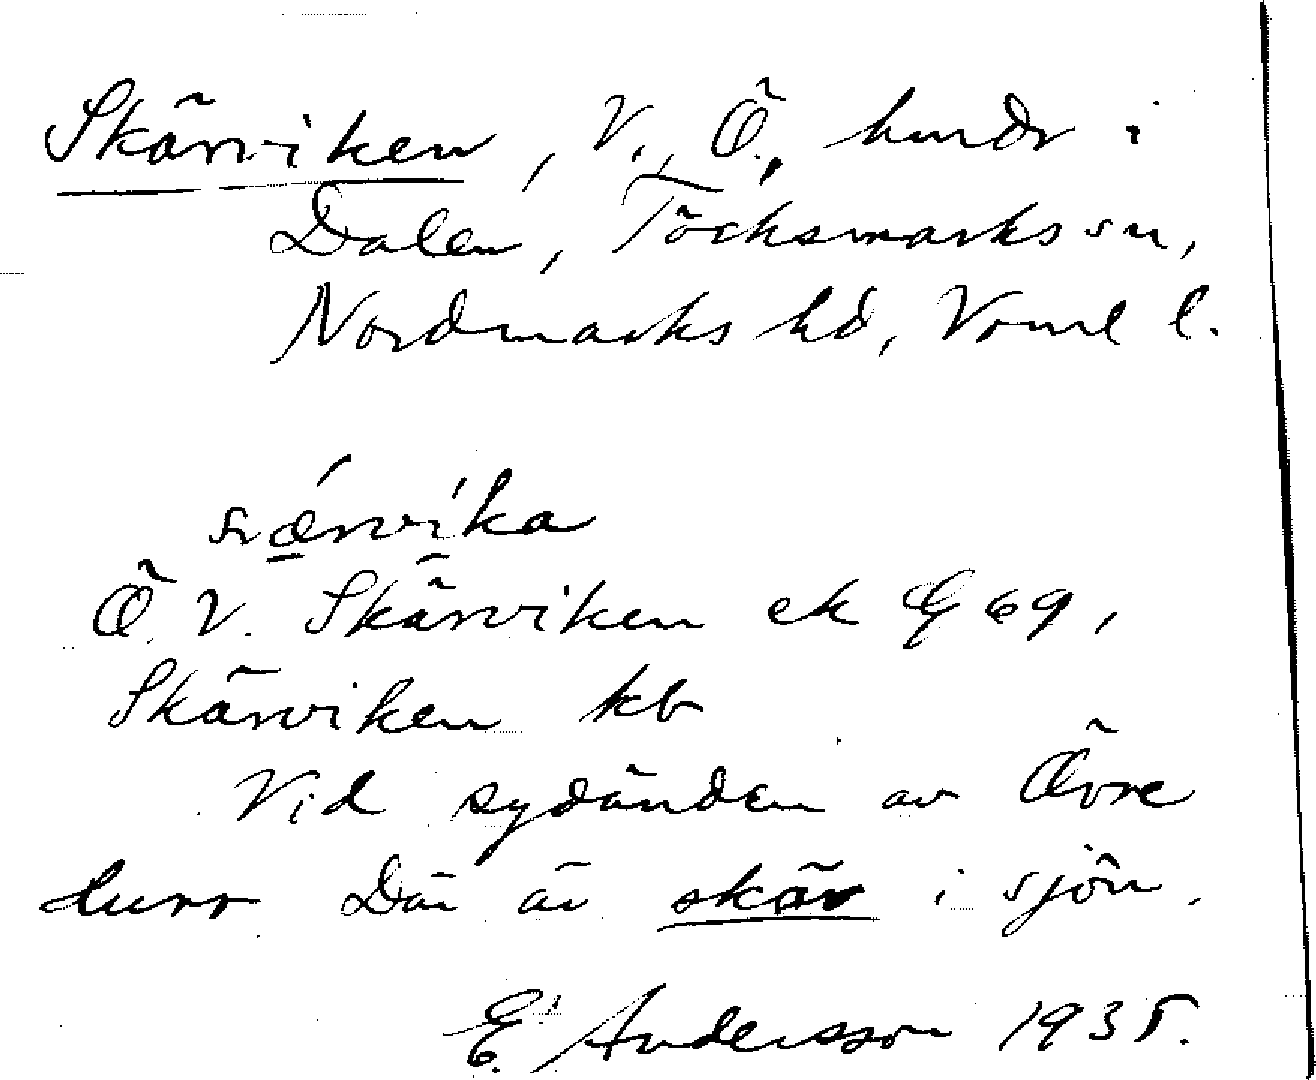 Skärviken, V., Ö., hmdr i
Dalen, Töcksmarks sn,
Nordmarks hd, Vrml l.
særvika
Ö. V. Skärviken ek G 69,
Skärviken kb
Vid sydänden av Övre
Där är skär i sjön.
E. Andersson 1935.